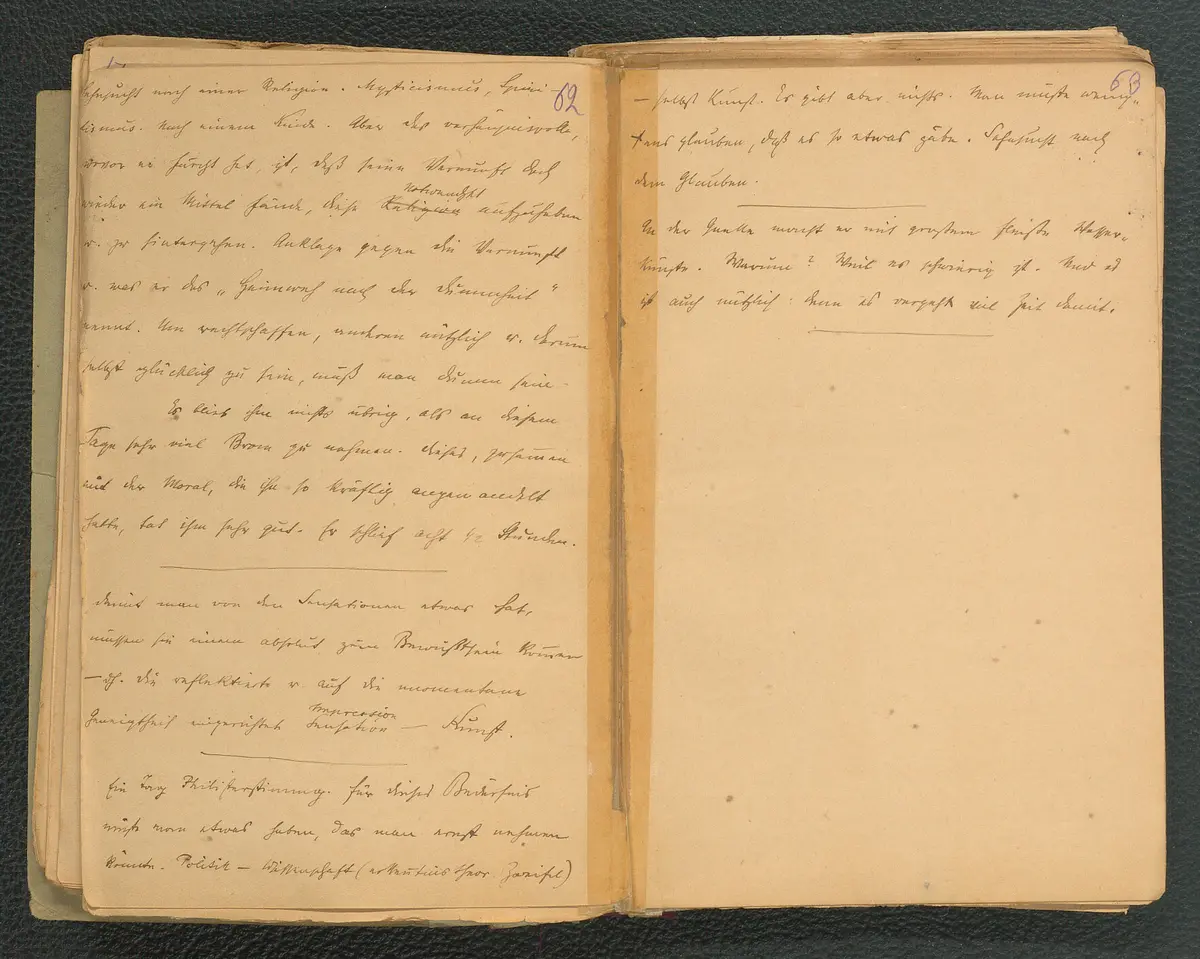 62
Sehnsucht nach einer Religion. Mysticismus, Spiri-
tismus. Nach einem Kinde. Aber das verhängnisvolle,
wovor er Furcht hat, ist, daß seine Vernunft doch
wieder ein Mittel fände, diese Religion Notwendgkt aufzuheben
u. zu hintergehen. Anklage gegen die Vernunft
u. was er das „Heimweh nach der Dummheit"
nennt. Um rechtschaffen, anderen nützlich u. darum
selbst glücklich zu sein, muß man dumm sein.
Es blieb ihm nichts übrig, als an diesem
Tage sehr viel Brom zu nehmen. Dieses, zusammen
mit der Moral, die ihn so kräftig angewandelt
hatte, tat ihm sehr gut. Er schlief acht 1/2 Stunden.
Damit man von den Sensationen etwas hat,
müssen sie einem absolut zum Bewußtsein kommen
— dh. die reflektierte u. auf die momentane
Geneigtheit eingerichtete Sensation Impression — Kunst.
Ein Tag Philisterstimmung. Für dieses Bedürfnis
müßte man etwas haben, das man ernst nehmen
könnte. Politik — Wissenschaft (erkenntnistheor. Zweifel)
63
— selbst Kunst. Es gibt aber nichts. Man müßte wenig-
stens glauben, daß es so etwas gäbe. Sehnsucht nach
dem Glauben.
In der Quelle macht er mit grossem Fleiße Wasser-
künste. Warum? Weil es schwierig ist. Und es
ist auch nützlich: denn es vergeht viel Zeit damit.